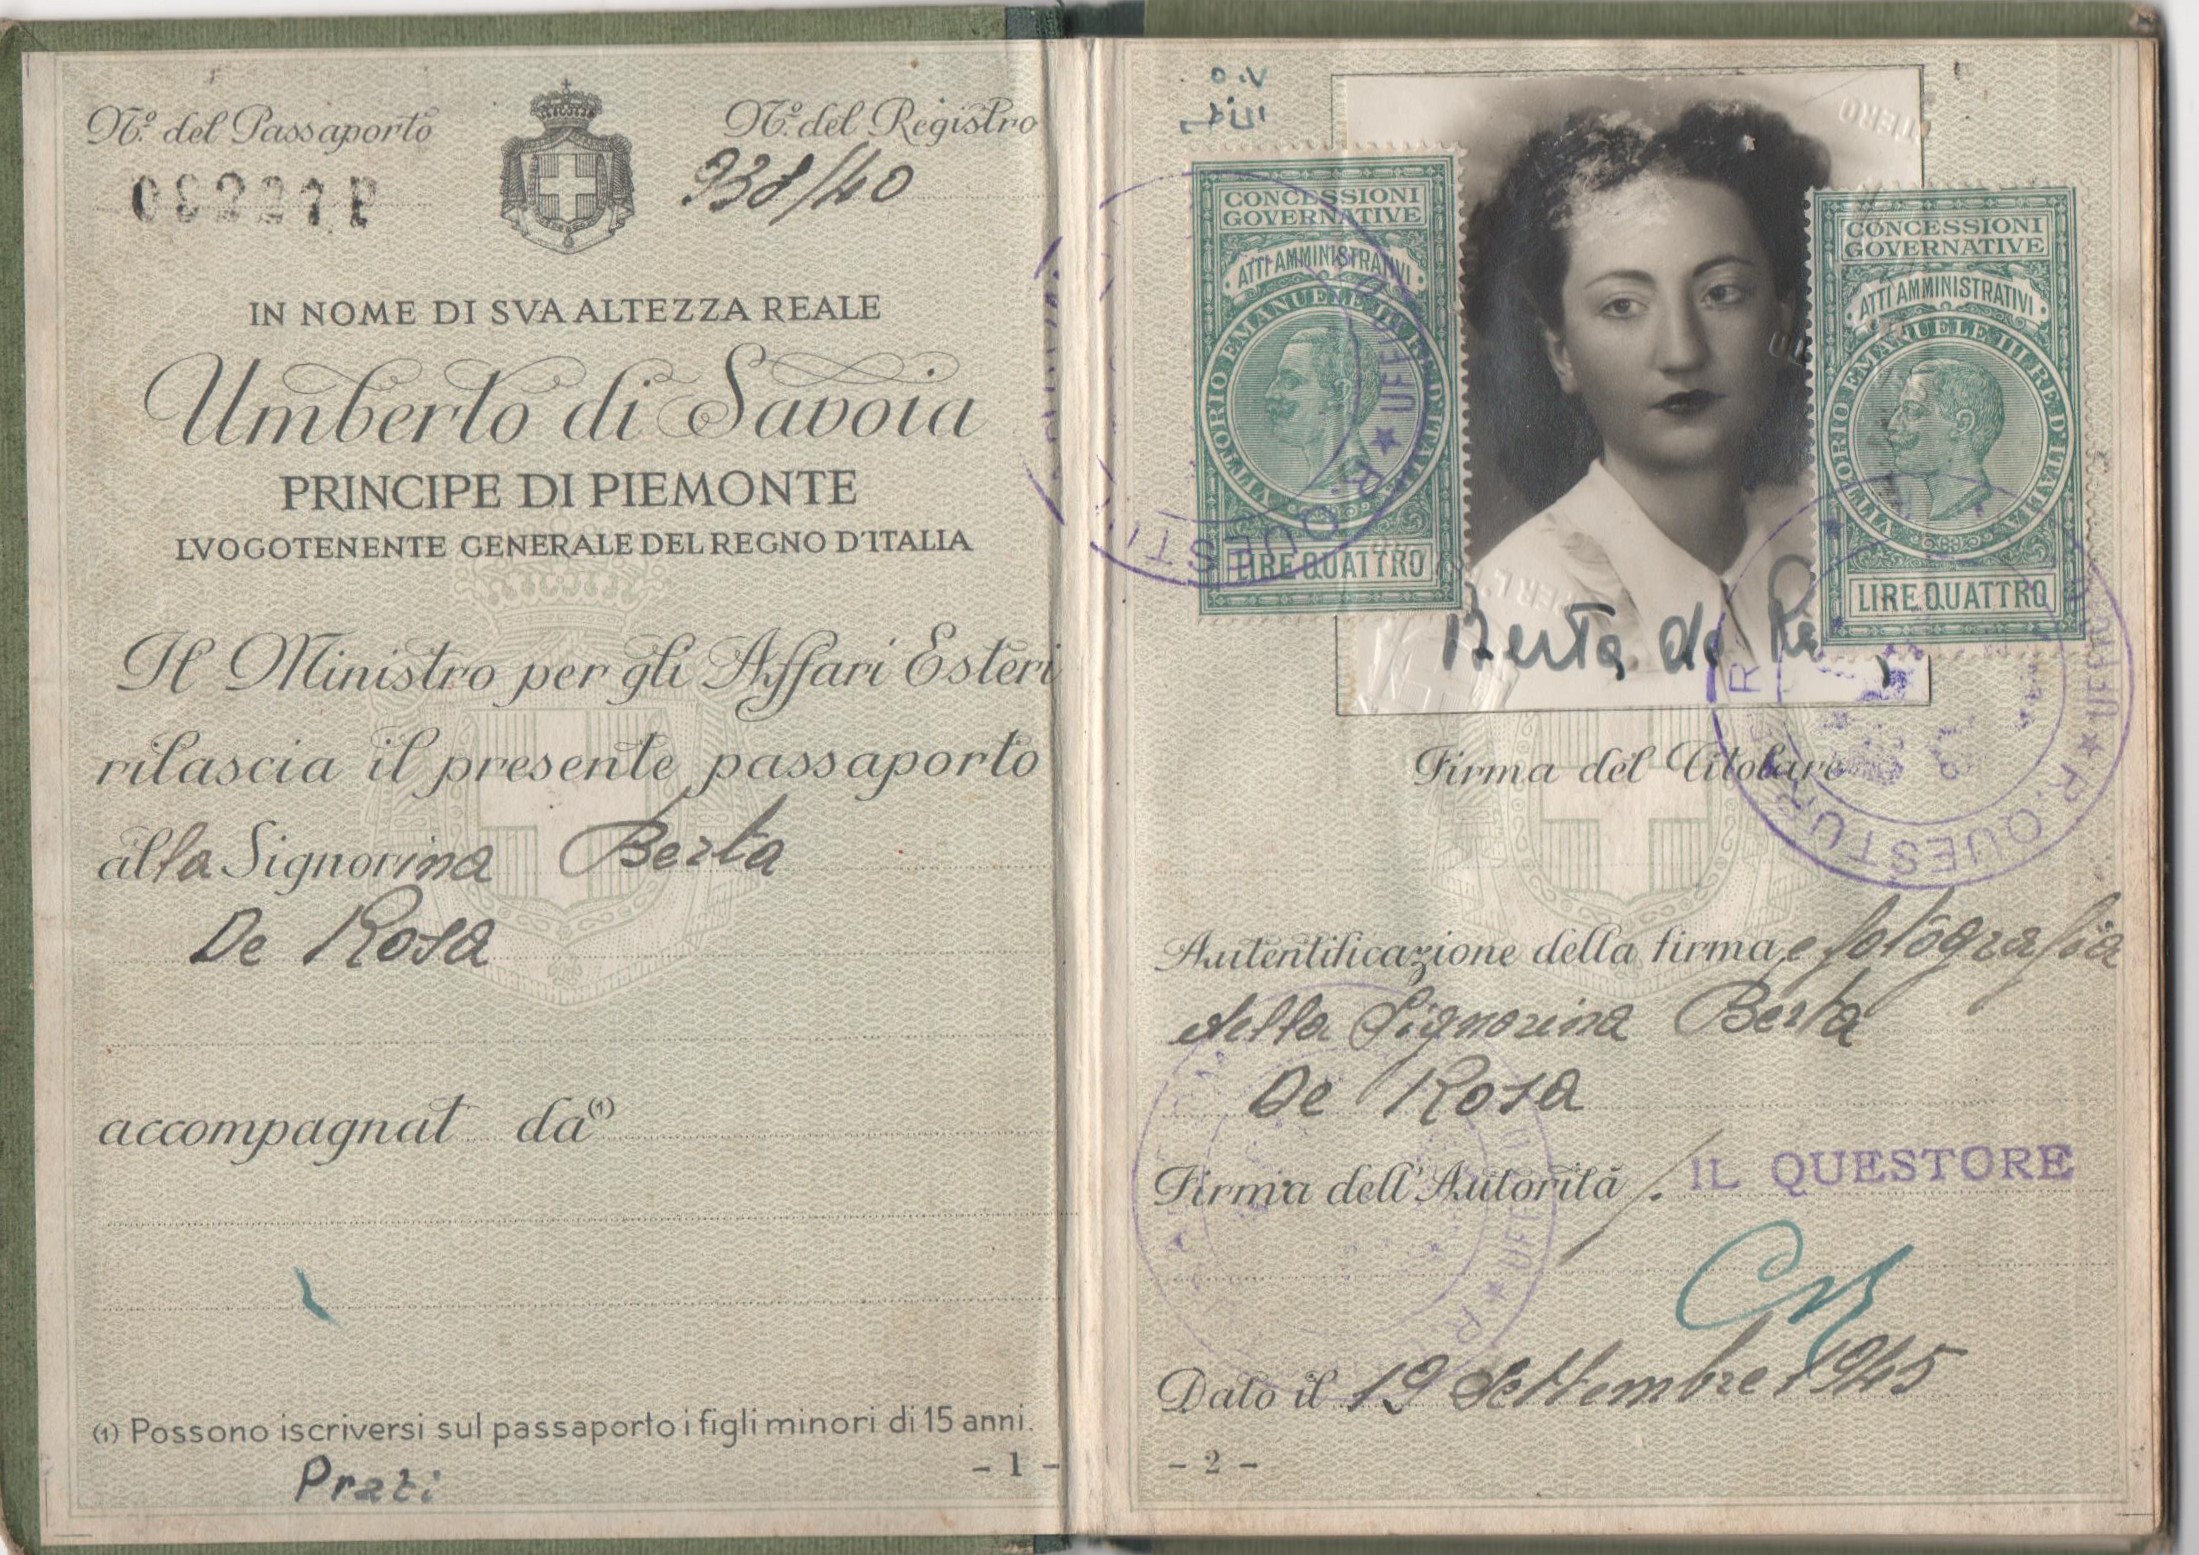 Nº del Passaporto
Nº del Registro
938/40
IN NOME DI SVA ALTEZZA REALE
Umberto di Savoia
PRINCIPE DI PIEMONTE
LVOGOTENENTE GENERALE DEL REGNO D'ITALIA
Il Ministro per gli Affari Esteri
rilascia il presente passaporto
alla Signorina Berta
De Rosa
accompagnat da (1)
(1) Possono iscriversi sul passaporto i figli minori di 15 anni.
Prati
- 1 -
CONCESSIONI
GOVERNATIVE
ATTI AMMINISTRATIVI
VITTORIO EMANUELE III RE D'ITALIA
LIRE QUATTRO
CONCESSIONI
GOVERNATIVE
ATTI AMMINISTRATIVI
VITTORIO EMANUELE III RE D'ITALIA
LIRE QUATTRO
R. QUESTURA
UFFI
Berta de R
Firma del Titolare
Autentificazione della firma e fotografia
della Signorina Berta
De Rosa
Firma dell'Autorità
IL QUESTORE
Dato il 19 Settembre 1945
- 2 -